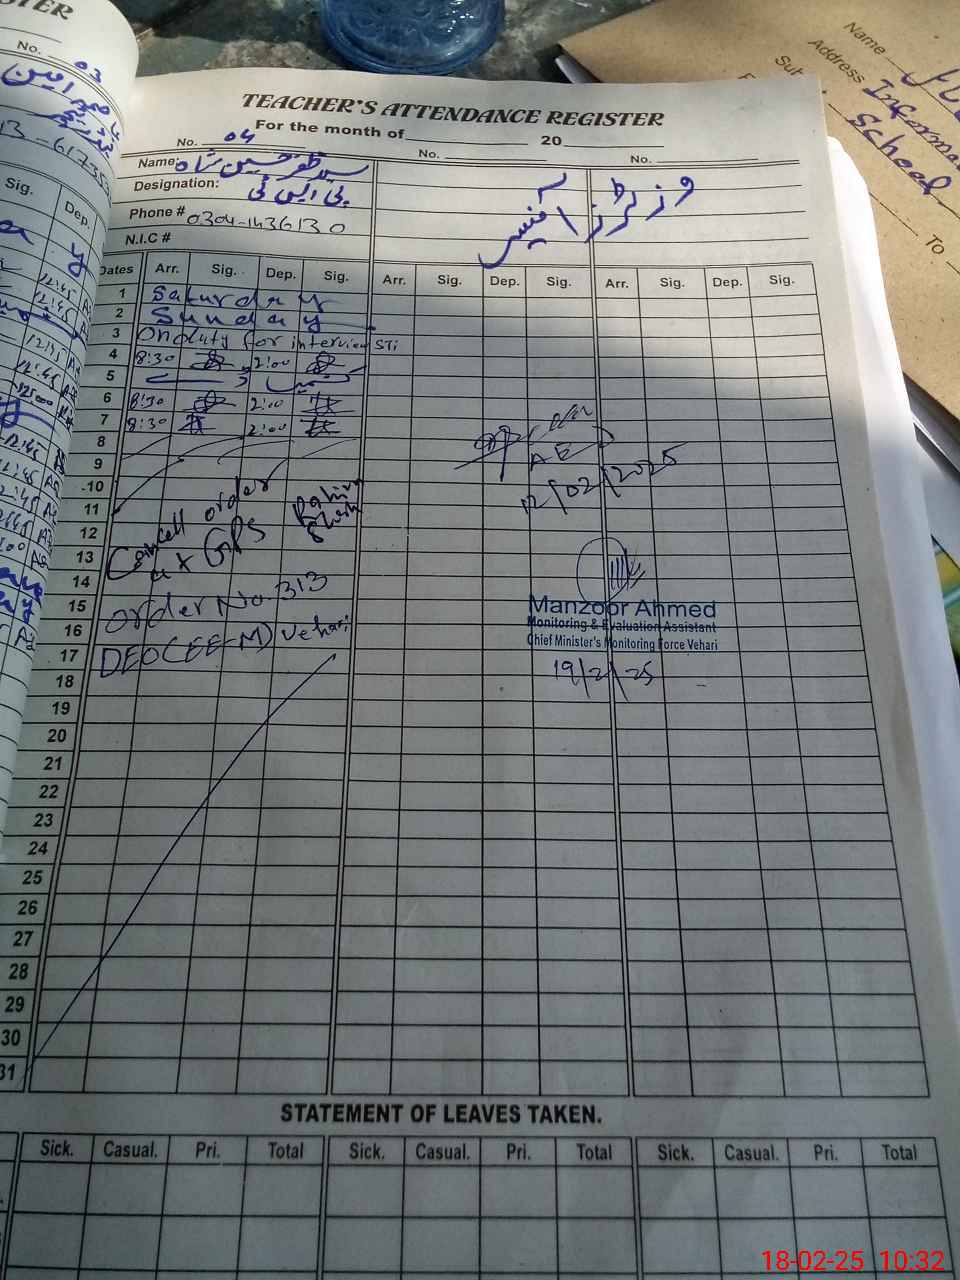 TEACHER'S ATTENDANCE REGISTER
For the month of 20
No. 04 No. No.
Name: سید ظفر حسین شاہ
Designation: پی ایس ٹی
Phone # 0304-1436130
N.I.C #
وزیٹرز آفیسر
Dates Arr. Sig. Dep. Sig. Arr. Sig. Dep. Sig. Arr. Sig. Dep. Sig.
1 Saturday
2 Sunday
3 On duty for interview STI
4 8:30 2:00
5
6 8:30 2:00
7 8:30 2:00
8
9
10
11
12
13
14
15
16
17
18
19
20
21
22
23
24
25
26
27
28
29
30
31
Cancell order
at GPS
order No. 313
DEO (EE-M) Vehari
AE
12/02/2025
Manzoor Ahmed
Monitoring & Evaluation Assistant
Chief Minister's Monitoring Force Vehari
19/2/25
STATEMENT OF LEAVES TAKEN.
Sick. Casual. Pri. Total Sick. Casual. Pri. Total Sick. Casual. Pri. Total
No. 03
Sig. Dep.
12:45
12:45
12:45
12:45
12:00
12:45
12:45
12:45
Name
Address
School
To
18-02-25 10:32